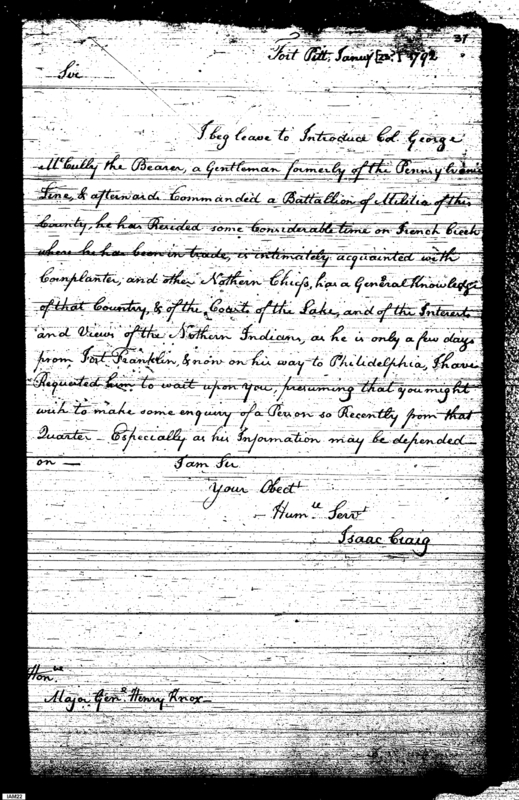 37
Fort Pitt, Janury [22.] 1792
Sir
I beg leave to Introduce Col. George
McCully the Bearer, a Gentleman formerly of the Pennsylvania
Line, & afterwards Commanded a Battallion of Militia of this
County, he has Resided some Considerable time on French Creek
where he has been in trade, is intimately acquainted with
Cornplanter, and other Nothern Chiefs, has a Genl. Knowledge
of that Country, & of the Coasts of the Lake, and of the Interests
and Views of the Nothern Indians, as he is only a few days
from Fort Franklin, & now on his way to Philidelphia, I have
Requested him to wait upon you, presuming that you might
wish to make some enquiry of a Person so Recently from that
Quarter Especially as his Information may be depended
on — I am Sir
Your Obedt
Humle Servt
Isaac Craig
Honle
Major Genl. Henry Knox —
IAM22